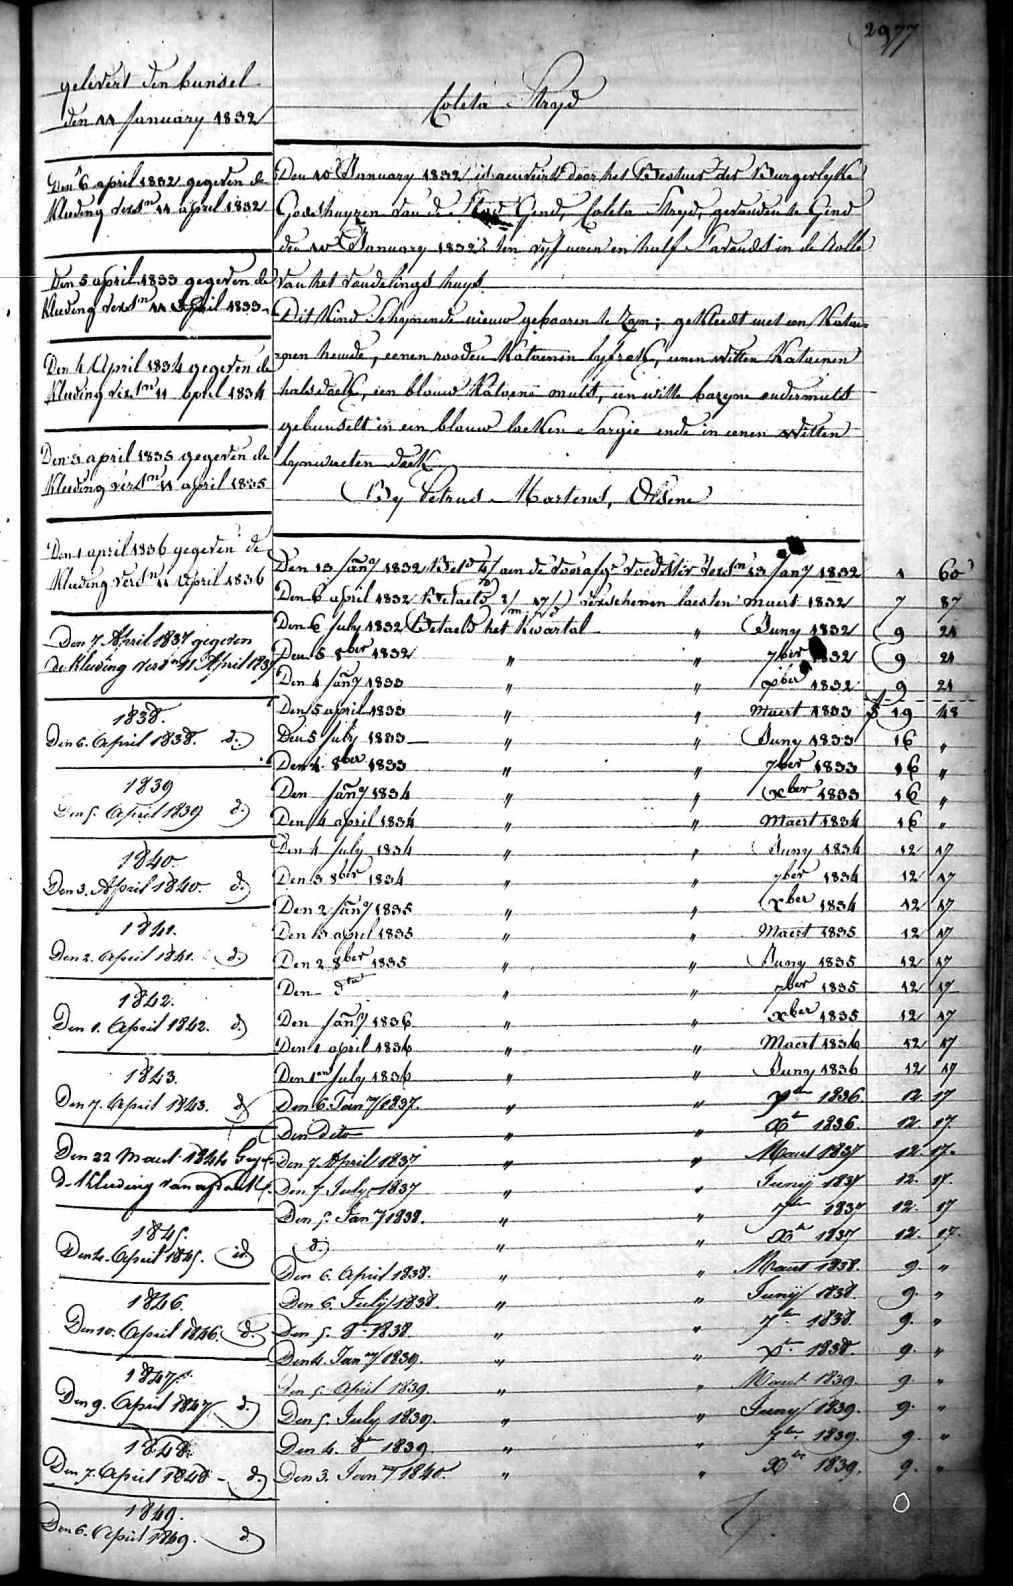 2977
gelevert den bunsel
den 11 January 1832
Coleta Stryd
Den 6 april 1832 gegeven de
kleeding versn 11 april 1832
Den 5 april 1833 gegeven de
kleeding versn 11 April 1833
Den 4 April 1834 gegeven de
kleeding versn 11 april 1834
Den 3 april 1835 gegeven de
kleeding versn 11 april 1835
Den 1 april 1836 gegeven de
kleeding versn 11 april 1836
Den 7 April 1837 gegeven
de kleeding versn 11 April 1837
1838.
Den 6. April 1838. d.
1839
Den 5. April 1839 d.
1840.
Den 3. April 1840. d.
1841.
Den 2. April 1841. d.
1842.
Den 1. April 1842. d.
1843.
Den 7. April 1843. d.
Den 22 Maart 1844
de kleeding van
1845.
Den 4. April 1845. id.
1846.
Den 10. April 1846. d.
1847.
Den 9. April 1847 d.
1848.
Den 7. April 1848 - d.
1849.
Den 6. April 1849. d.
Den 10 January 1832 is door het Bestuur der Burgerlyke
Godshuyzen van de Stad Gend, Coleta Stryd, gevonden te Gend
den 10 January 1832 ten vyf uren en half s'avonds in de Rolle
van het vondelings huys.
Dit kind schynende nieuw gebooren te zyn; gekleedt met een Katoe-
nen hemde, eenen rooden Katoenen lyfrok, eenen witten Katoenen
halsdoek, een blauw Katoene muts, een witte bazyne ondermuts
gebunselt in een blauw laeken sargie ende in eenen witten
lynwaeten doek
By Petrus Martens, Olsene
Den 13 Jany 1832 aen de voorsz voedster versn 13 Jany 1832 1 60
Den 6 april 1832 Betaelt verschenen laesten maert 1832 7 87
Den 6 July 1832 Betaelt het kwartal " Juny 1832 9 21
Den 5 8ber 1832 " " 7ber 1832 9 21
Den 4 Jany 1833 " " xber 1832 9 21
Den 5 april 1833 " " Maert 1833 19 48
Den 5 July 1833 " Juny 1833 16 "
Den 4 8ber 1833 " " 7ber 1833 16 "
Den Jany 1834 " " xber 1833 16 "
Den 4 april 1834 " " Maert 1834 16 "
Den 4 July 1834 " " Juny 1834 12 17
Den 3 8ber 1834 " " 7ber 1834 12 17
Den 2 Jany 1835 " " xber 1834 12 17
Den 3 april 1835 " " Maert 1835 12 17
Den 2 8ber 1835 " " Juny 1835 12 17
Den dto " " 7ber 1835 12 17
Den Jany 1836 " " xber 1835 12 17
Den 1 april 1836 " " Maert 1836 12 17
Den 1en July 1836 " " Juny 1836 12 17
Den 6. Jany 1837. " " 7re 1836 12 17
Den dito " " Xre 1836. 12. 17.
Den 7. April 1837 " " Maart 1837 12. 17.
Den 7. July 1837 " " Junij 1837 12. 17.
Den 5. Jany 1838. " " 7re 1837 12. 17
d. " " Xre 1837 12. 17.
Den 6. April 1838. " " Maart 1838. 9. "
Den 6. July 1838. " " Junij 1838. 9. "
Den 5. 8re 1838. " " 7re 1838. 9. "
Den 4. Jany 1839. " " Xre 1838. 9. "
Den 5. April 1839. " " Maart 1839. 9. "
Den 5. July 1839. " " Juny 1839. 9. "
Den 4. 8re 1839. " " 7re 1839. 9. "
Den 3. Jany 1840. " " Xre 1839. 9. "